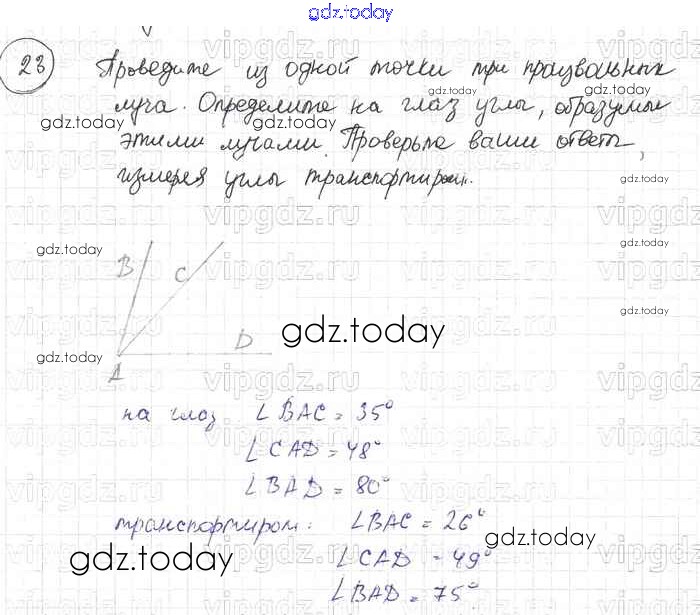 gdz.today
23
Проведите из одной точки три произвольных
луча. Определите на глаз углы, образуемые
gdz.today gdz.today
этими лучами. Проверьте ваши ответы,
измеряя углы транспортиром.
gdz.today
gdz.today gdz.today
B C
gdz.today
gdz.today D
gdz.today
A
на глаз ∠BAC = 35°
∠CAD = 48°
∠BAD = 80°
транспортиром: ∠BAC = 26°
gdz.today
gdz.today ∠CAD = 49°
∠BAD = 75°
vipgdz.ru